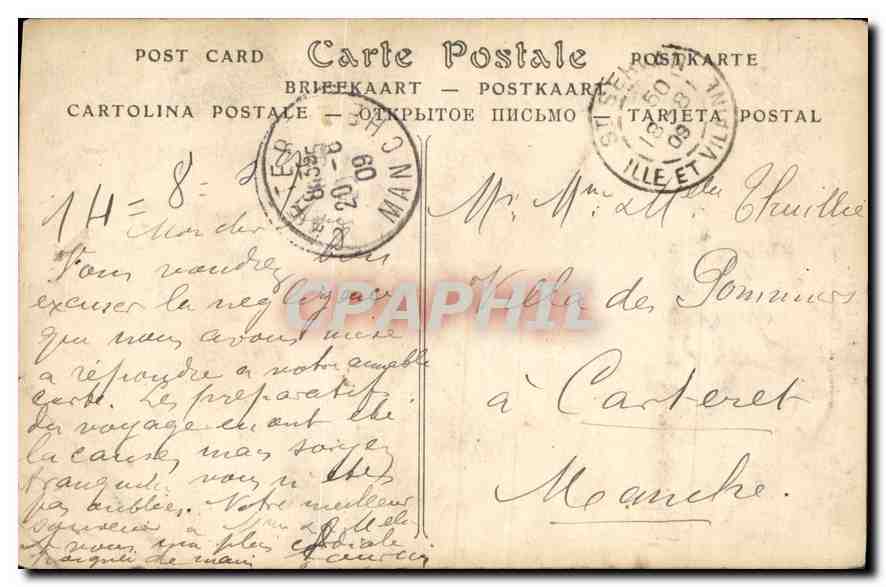 POST CARD Carte Postale POSTKARTE
BRIEFKAART — POSTKAART
CARTOLINA POSTALE — ОТКРЫТОЕ ПИСЬМО — TARJETA POSTAL
ILLE ET VILAINE
18 50
8
09
MANCHE
09
14 = 8 =
Mon cher
Vous voudrez bien
excuser la negligence
que nous avons mise
a répondre a votre aimable
carte. Les preparatifs
du voyage en ont été
la cause, mais soyez
tranquille vous n'êtes
pas oubliés. Notre meilleur
souvenir a Mme & Melle
& vous ma plus cordiale
poignée de main
Mr, Mme & Melle Thuillie
Villa des Pommiers
à Carteret
Manche.
CPAPHIL